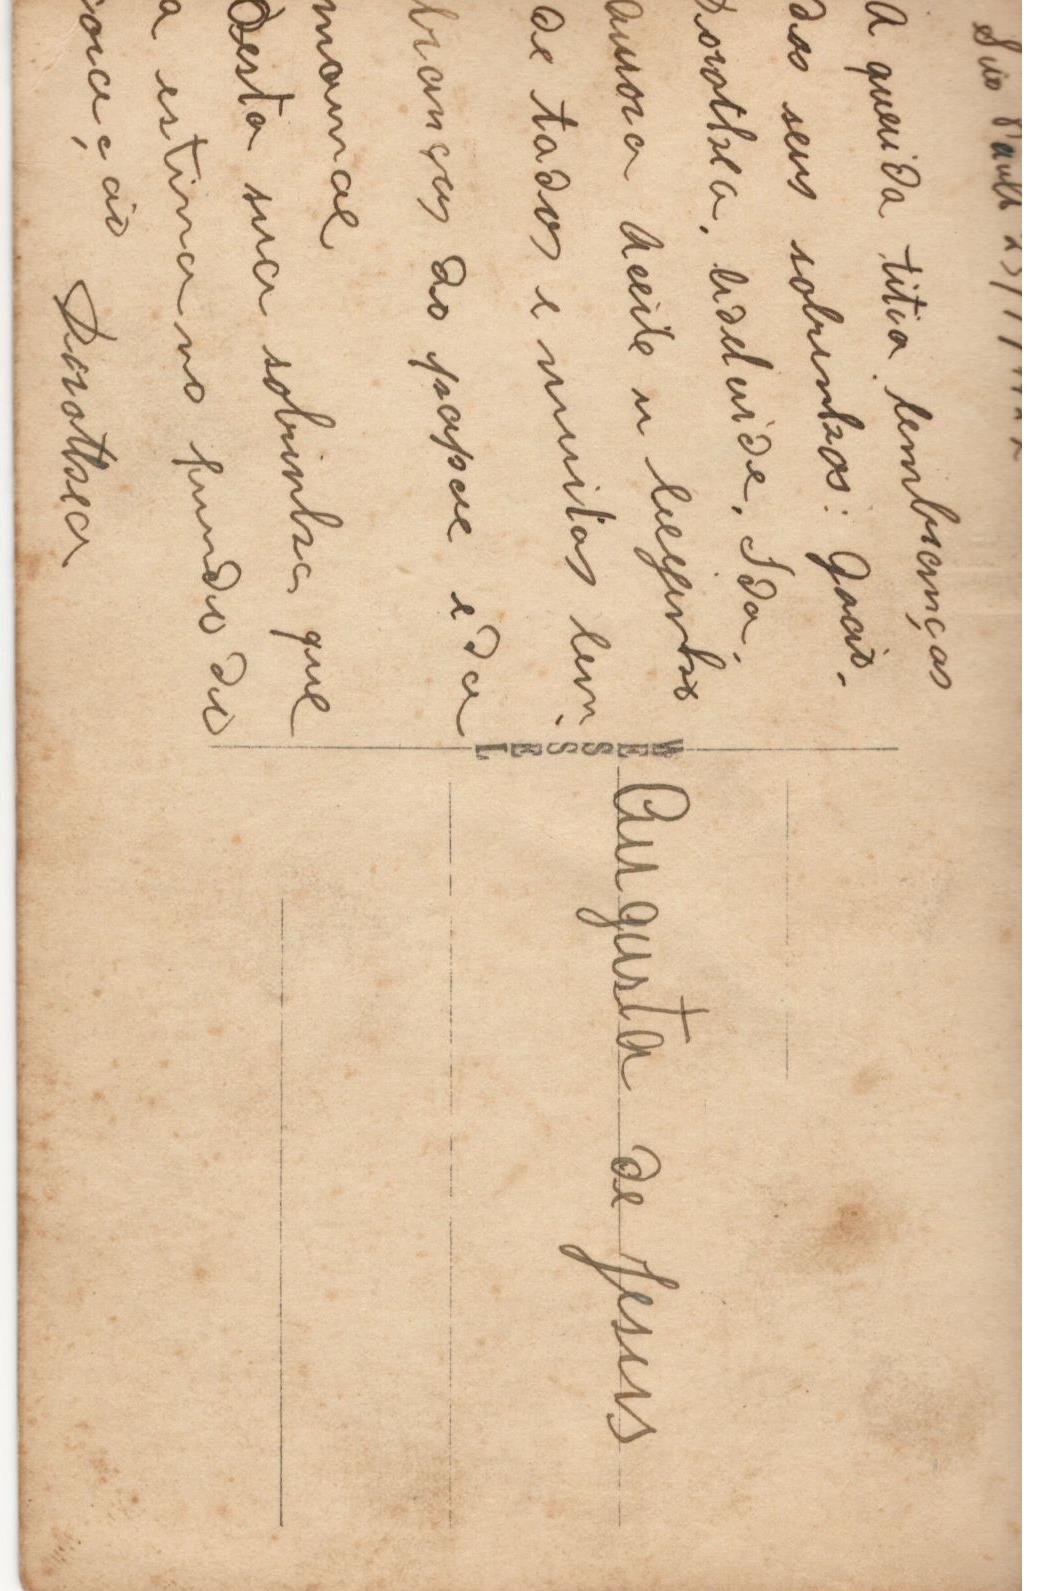 São Paulo 23/7/1922
A querida titia lembranças
dos seus sobrinhos: João.
Dorothea. Adelaide. Ida.
Aurora Aceite u beijinho
de todos e muitas lem
branças do papae e da
mamae
Desta sua sobrinha que
a estima no fundo do
coração
Dorothea
WESSEL
Augusta de Jesus